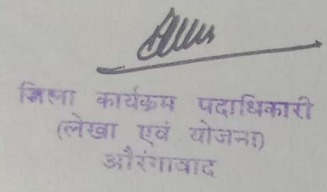 जिला कार्यक्रम पदाधिकारी
(लेखा एवं योजना)
औरंगाबाद